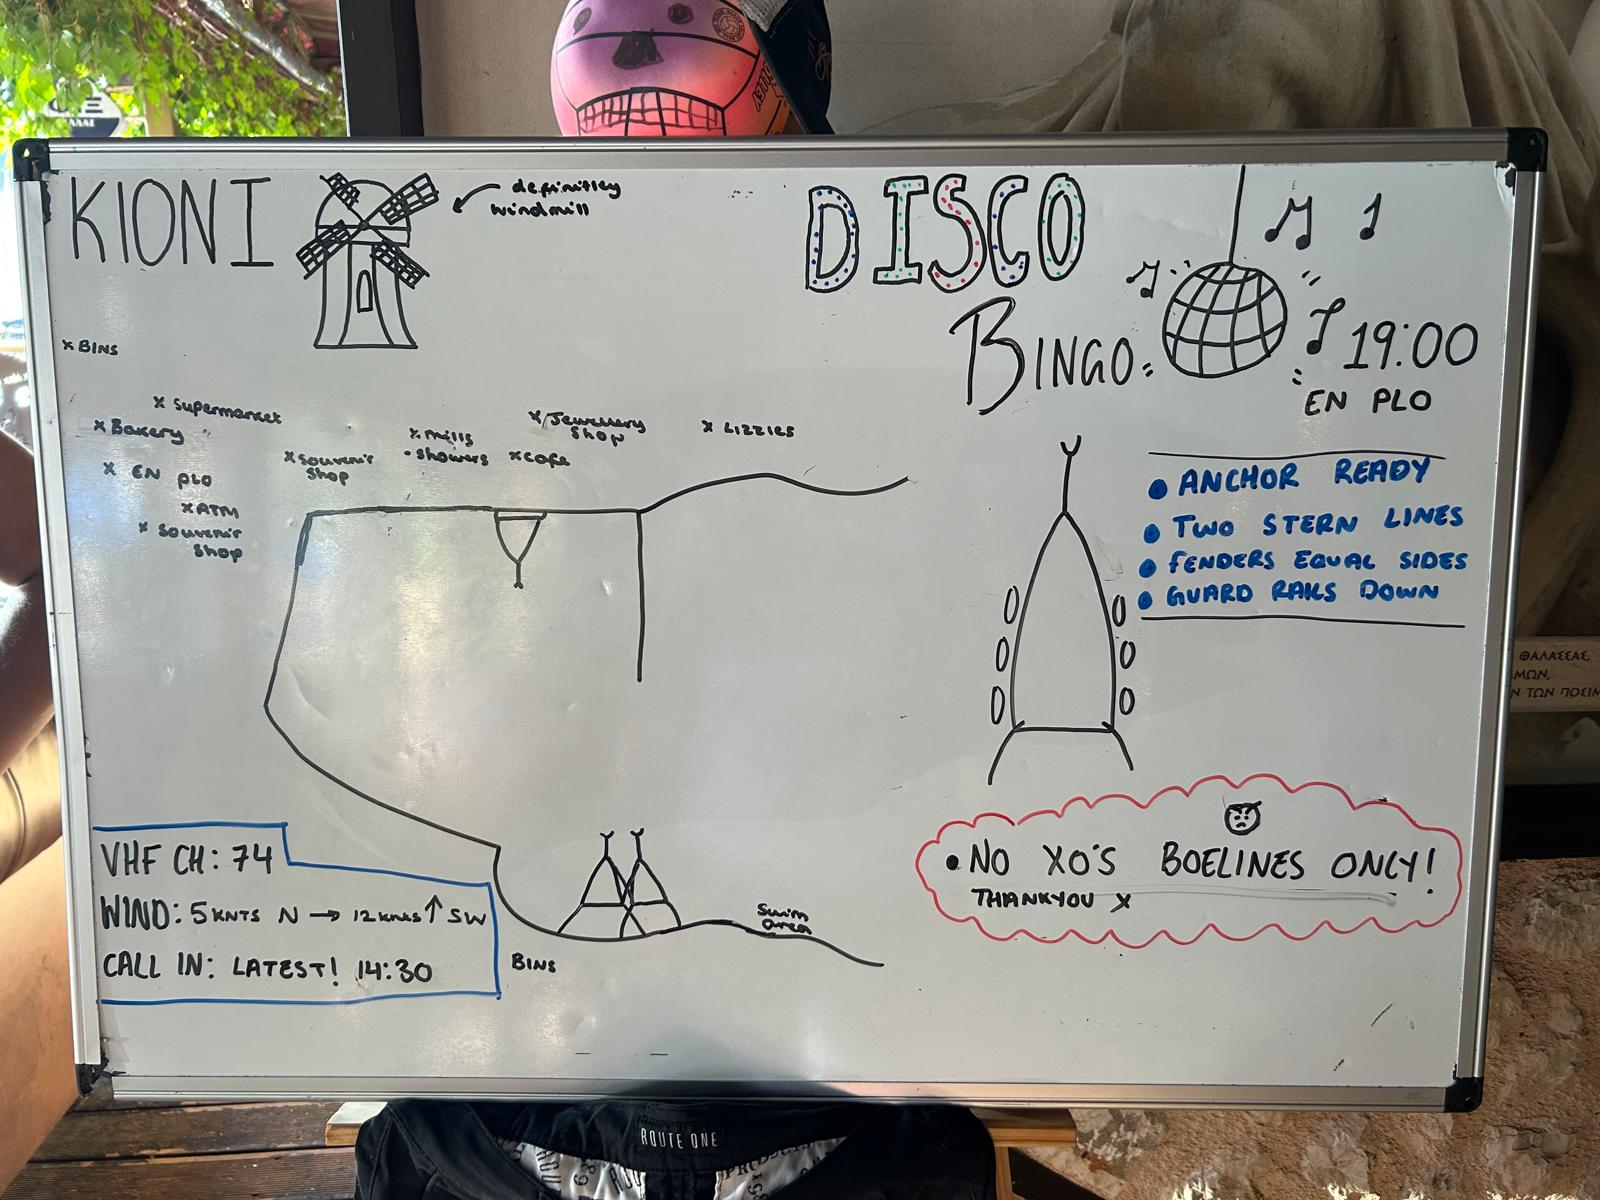 KIONI
definitley
windmill
DISCO
BINGO
19:00
EN PLO
x BINS
x Supermarket
x Bakery
x EN PLO
x ATM
x Souvenir
Shop
x Souvenir
Shop
x Mills
- Showers
x Cafe
x Jewellery
Shop
x LIZZIES
• ANCHOR READY
• TWO STERN LINES
• FENDERS EQUAL SIDES
• GUARD RAILS DOWN
• NO XO'S BOELINES ONLY!
THANKYOU X
VHF CH: 74
WIND: 5 KNTS N → 12 KNTS ↑ SW
CALL IN: LATEST! 14:30
BINS
Swim
area
ROUTE ONE
ΘΑΛΑΣΣΑΣ,
ΤΩΝ